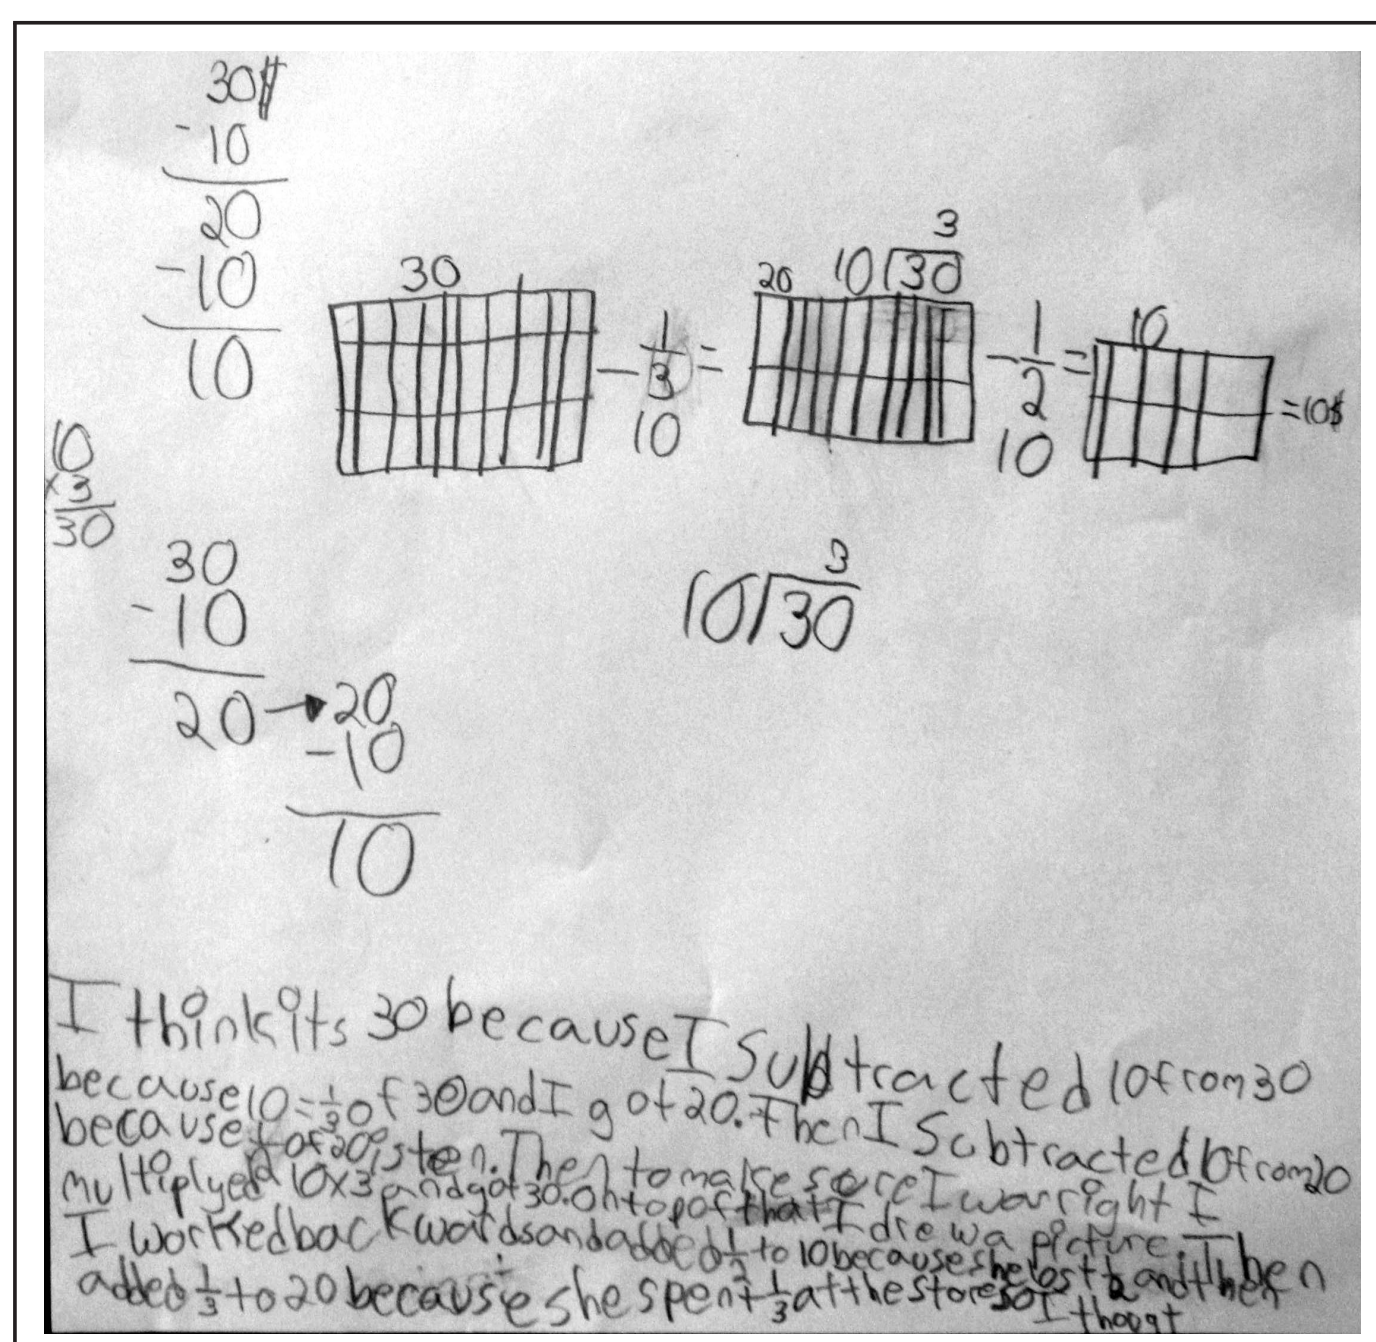 30$
-10
20
-10
10
10
x3
30
30
-10
20 → 20
-10
10
30
- 1/3 =
10
20
3
10)30
- 1/2 =
10
10
=10$
3
10)30
I think its 30 because I Subtracted 10 from 30
because 10 = 1/3 of 30 and I got 20. Then I Scbtracted 10 from 20
because of 20 is ten. Then to make sore I was right I
multiplyed 10x3 and got 30. On top of that I drew a picture. Then
I worked backwards and added 1/2 to 10 because she lost 1/2 and then
added 1/3 to 20 because she spent 1/3 at the store so I thougt